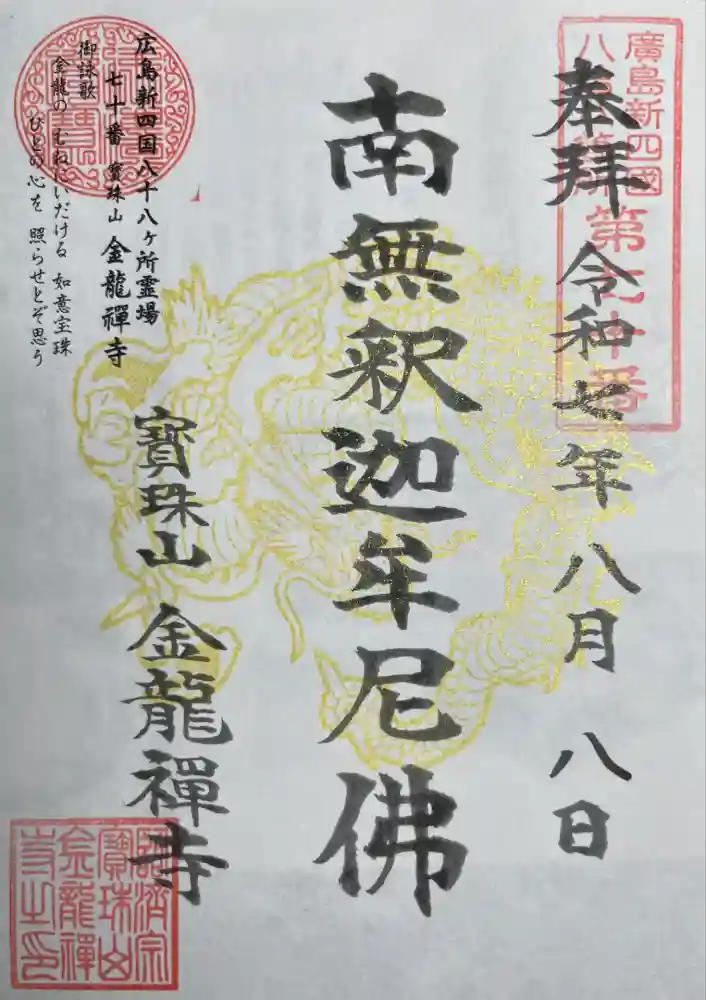 廣島新四國
八十八ヶ所
第七十番
奉拝 令和七年八月 八日
南無釈迦牟尼佛
広島新四国八十八ヶ所霊場
七十番 寳珠山 金龍禪寺
御詠歌
金龍の むねにいだける 如意宝珠
ひとの心を 照らせとぞ思う
寳珠山 金龍禪寺
臨済宗
寳珠山
金龍禪
寺之印